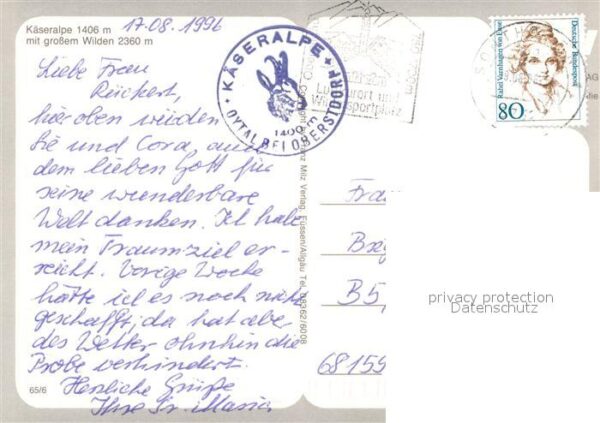 Käseralpe 1406 m
mit großem Wilden 2360 m
17.08.1996
Liebe Frau
Rückert,
hier oben würden
Sie und Cora, auch
dem lieben Gott für
seine wunderbare
Welt danken. Ich habe
mein Traumziel er-
reicht. Vorige Woche
hätte ich es noch nicht
geschafft, da hat aber
das Wetter ohnehin die
Probe verhindert.
Herzliche Grüße
Ihre Sr. Maria
65/6
KÄSERALPE
1406 m
OYTAL BEI OBERSTDORF
Luftkurort und
Wintersportplatz
SONTHO
Rahel Varnhagen von Ense
Deutsche Bundespost
80
Copyright by Franz Milz Verlag, Füssen/Allgäu Tel. 08362/6008
AG
Fra
B5,
68159
privacy protection
Datenschutz